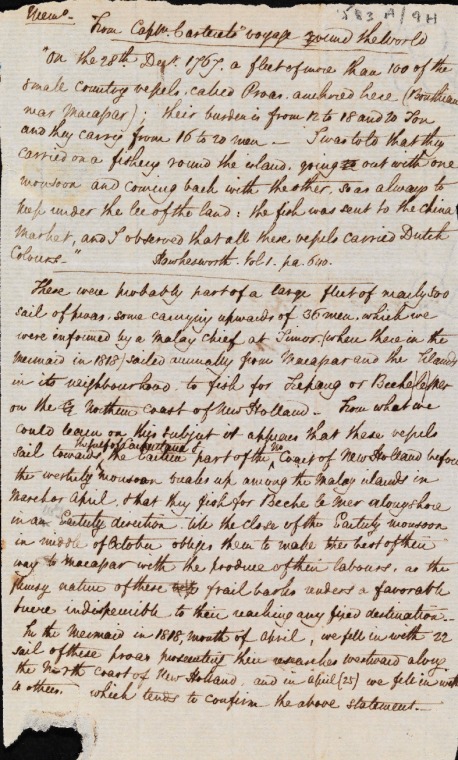 Memo.
583 A/9H
From Captn. Carterets voyage round the world
"On the 28th Decr. 1767. a fleet of more than 100 of the
small country vessels, called Proas. anchored here (Bonthian
near Macapar); their burden is from 12 to 18 and 20 Ton
and they carry from 16 to 20 men - I was told that they
carried on a fishery round the island, going out with one
monsoon and coming back with the other, so as always to
keep under the lee of the land: the fish was sent to the China
Market, and I observed that all these vessels carried Dutch
Colours" Hawkesworth. Vol. 1. pa. 640.
These were probably part of a large fleet of nearly 500
sail of proas. some carrying upwards of 36 men. which we
were enformed by a Malay chief at Timor. (when there in the
Mermaid in 1818) sailed annually from Macapar and the Islands
in its neighbourhood to fish for Trepang or Beche le Mer
on the Northern coast of New Holland - From what we
could learn on this subject it appears that these vessels
sail towards the gulf of Carpentaria & the Eastern part of the No. Coast of New Holland before
the westerly monsoon breaks up among the Malay islands in
March or April, that they fish for Beche le Mer along shore
in an Easterly direction till the close of the Easterly monsoon
in middle of October obliges them to make the best of their
way to Macapar with the produce of their labours, as the
flimsy nature of these frail barks renders a favorable
breeze indispensible to their reaching any fixed destination.-
In the Mermaid in 1818, month of April, we fell in with 22
sail of these proas prosecuting their researches westward along
the North coast of New Holland, and in april (25) we fell in with
6 others. which tends to confirm the above statement.-